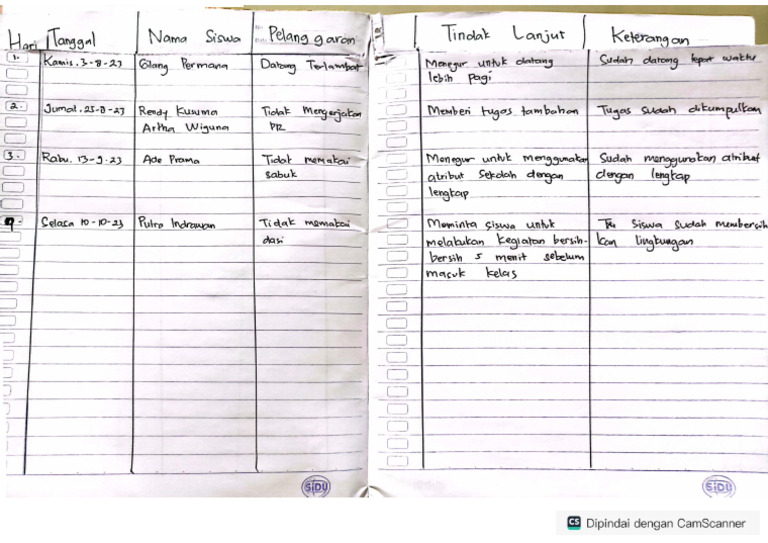 Hari / Tanggal Nama Siswa Pelanggaran Tindak Lanjut Keterangan
1. Kamis. 3-8-23 Gilang Permana Datang Terlambat Menegur untuk datang Sudah datang tepat waktu
lebih pagi
2. Jumat. 25-8-23 Rendy Kusuma Tidak Mengerjakan Memberi tugas tambahan Tugas sudah dikumpulkan
Artha Wiguna PR
3. Rabu. 13-9-23 Ade Prama Tidak memakai Menegur untuk menggunakan Sudah menggunakan atribut
sabuk atribut sekolah dengan dengan lengkap
lengkap
4. Selasa 10-10-23 Putra Indrawan Tidak memakai Meminta siswa untuk Siswa sudah membersih
dasi melakukan kegiatan bersih- kan lingkungan
bersih 5 menit sebelum
masuk kelas
SiDU SiDU
CS Dipindai dengan CamScanner